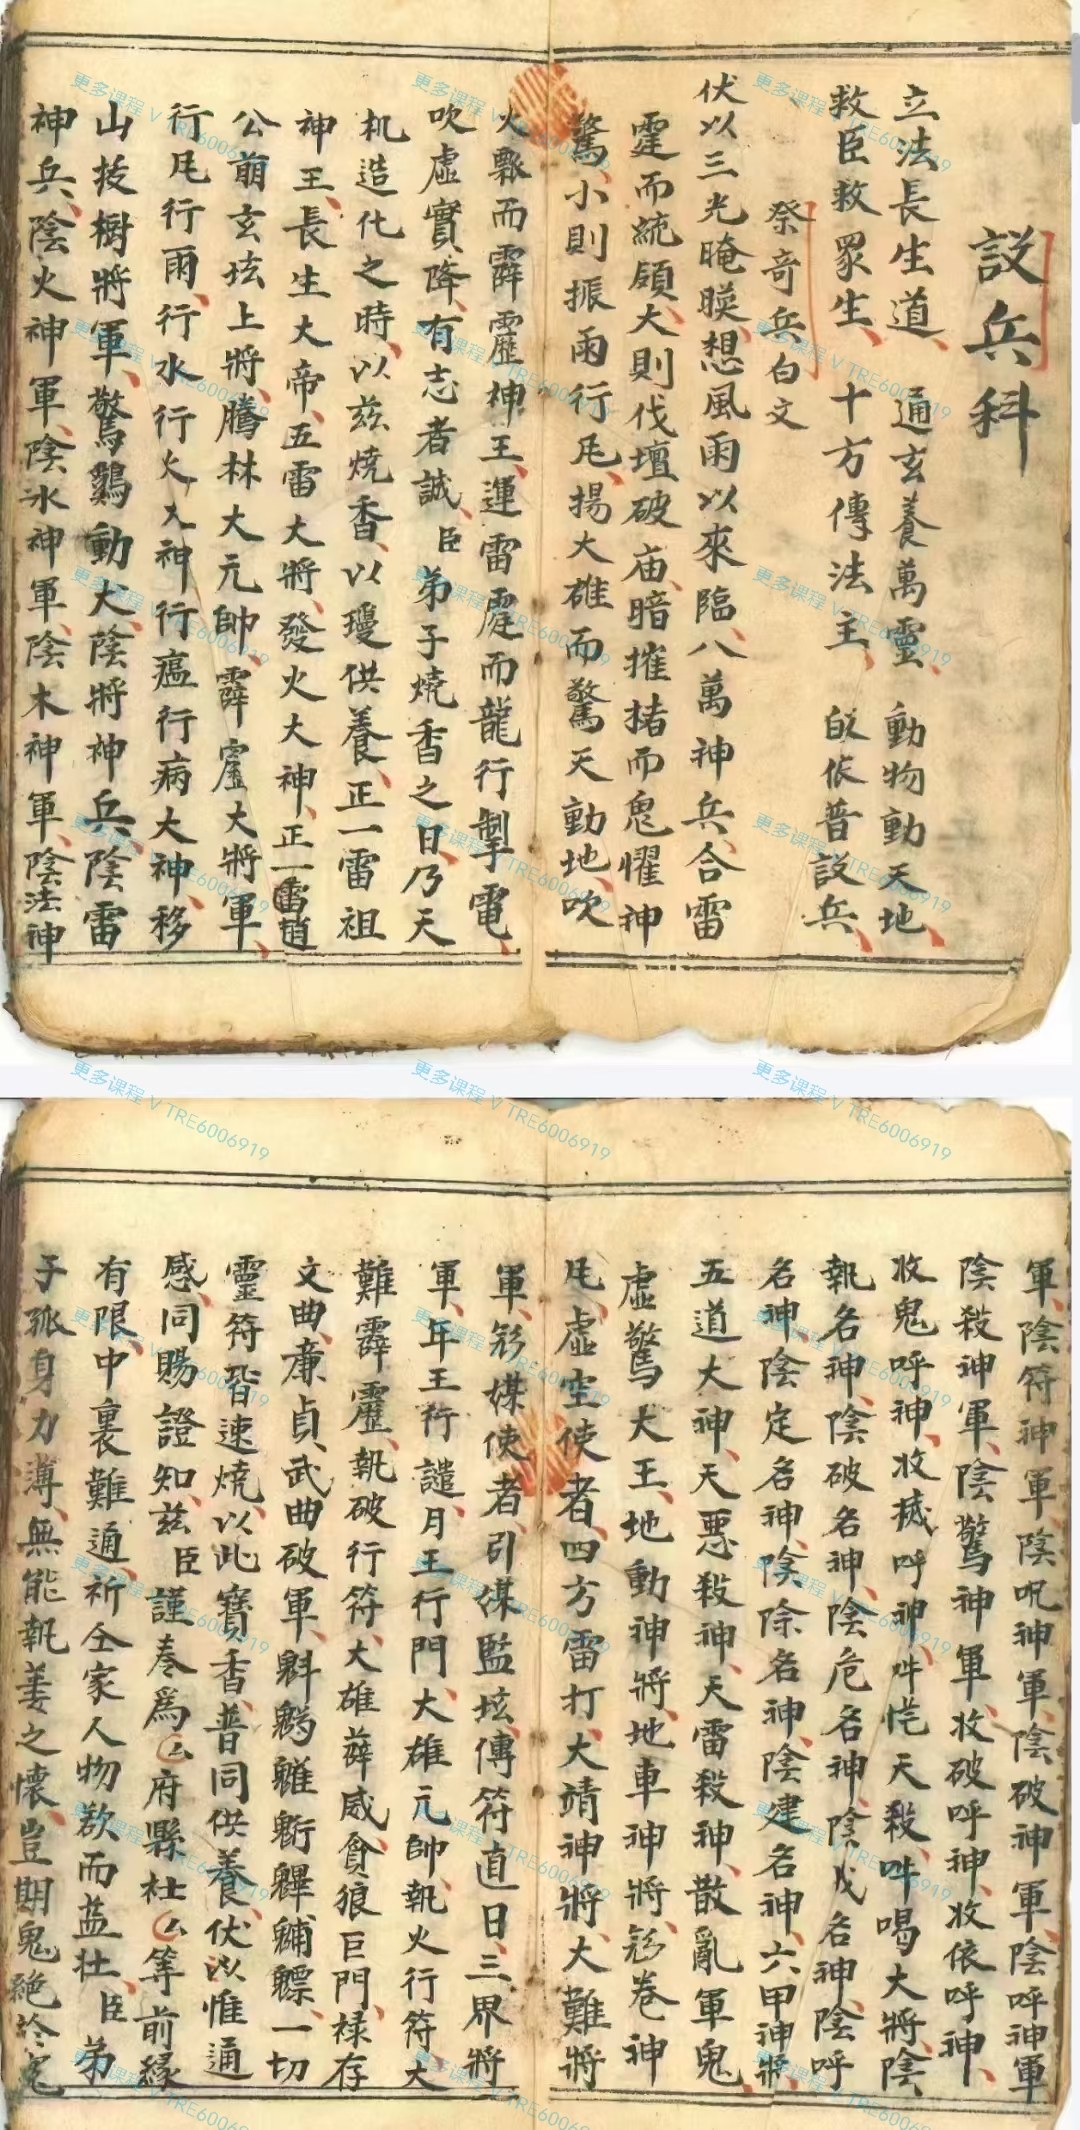 設兵科
立法長生道、通玄養萬靈、動物動天地、
救臣救眾生、十方傳法主、皈依普設兵、
祭奇兵白文
伏以三光晻暎、想風雨以來臨、八萬神兵、合雷
霆而統領、大則伐壇破庙、暗摧堵而鬼懼神
驚、小則振雨行凬、揚大雄而驚天動地、吹
火飄而霹靂神王、運雷霆而龍行掣電、
吹虛實降、有志者誠、臣弟子燒香之日、乃天
机造化之時、以兹燒香、以瓊供養、正一雷祖
神王、長生大帝、五雷大將、發火大神、正一雷趙
公前玄坛上將、騰林大元帥、霹靂大將軍、
行凬行雨、行水行火大神、行瘟行病大神、移
山技樹將軍、驚鷄動犬、陰將神兵、陰雷
神兵、陰火神軍、陰水神軍、陰木神軍、陰法神
軍、陰符神軍、陰呪神軍、陰破神軍、陰呼神軍
陰殺神軍、陰驚神軍、收破呼神、收依呼神、
收鬼呼神、收槭呼神、吽恾天殺、吽喝大將、陰
執名神、陰破名神、陰危名神、陰戊名神、陰呼
名神、陰定名神、陰除名神、陰建名神、六甲神將、
五道大神、天惡殺神、天雷殺神、散亂軍鬼、
虛驚大王、地動神將、地車神將、卷神
凬、虛空使者、四方雷打、大靖神將、大難將
軍、媒使者、引媒監坛、傳符直日、三界將
軍、年王行譴、月王行門、大雄元帥、執火行符、大
難霹靂、執破行符、大雄薜威、貪狼巨門、禄存
文曲、亷貞武曲破軍、魁魓䰢魓䰢魒、一切
靈符、皆速燒、以此寶香、普同供養、伏以惟通
感、同賜證知、兹臣謹奏爲厶府縣社厶等前縁
有限、中裏難通、祈仝家人物欵而益壮、臣弟
子孤身力薄、無能執姜之懷、豈期鬼絶於